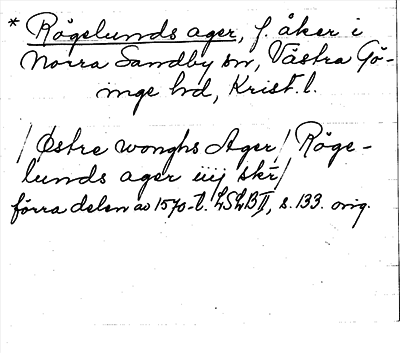 * Rögelunds ager, f. åker i
Norra Sandby sn, Västra Gö-
inge hd, Krist. l.
/Østre wonghs Ager/ Röge-
lunds ager iiij skr/
förra delen av 1570-t. LSLB II, s. 133. orig.